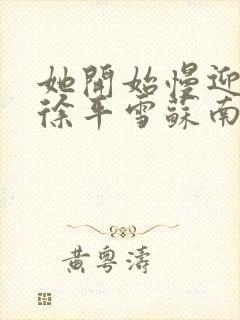 她開始慢迎
徐平雪蘇南
黃粵濤